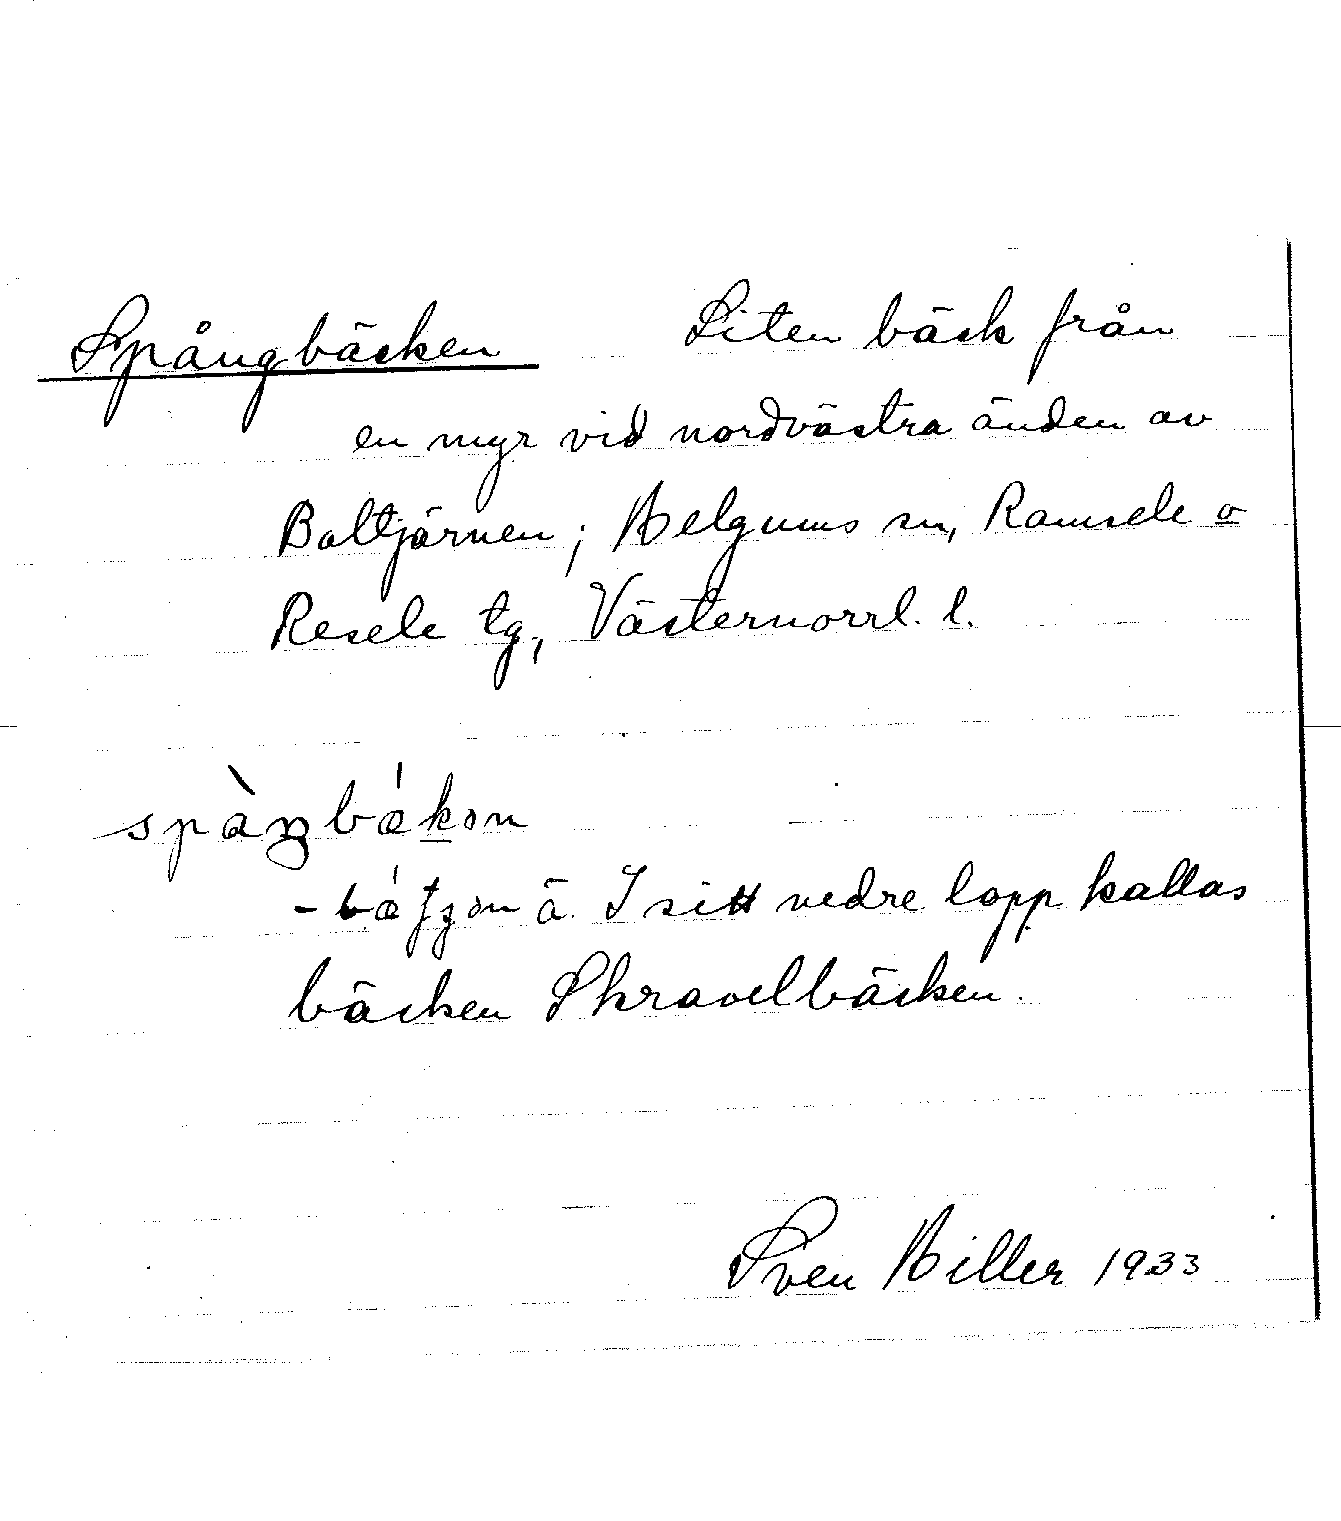 Spångbäcken Liten bäck från
en myr vid nordvästra änden av
Boltjärnen; Helgums sn, Ramsele o
Resele tg, Västernorrl. l.
bäcken Skravelbäcken.
I sitt nedre lopp kallas
Sven Hiller 1933